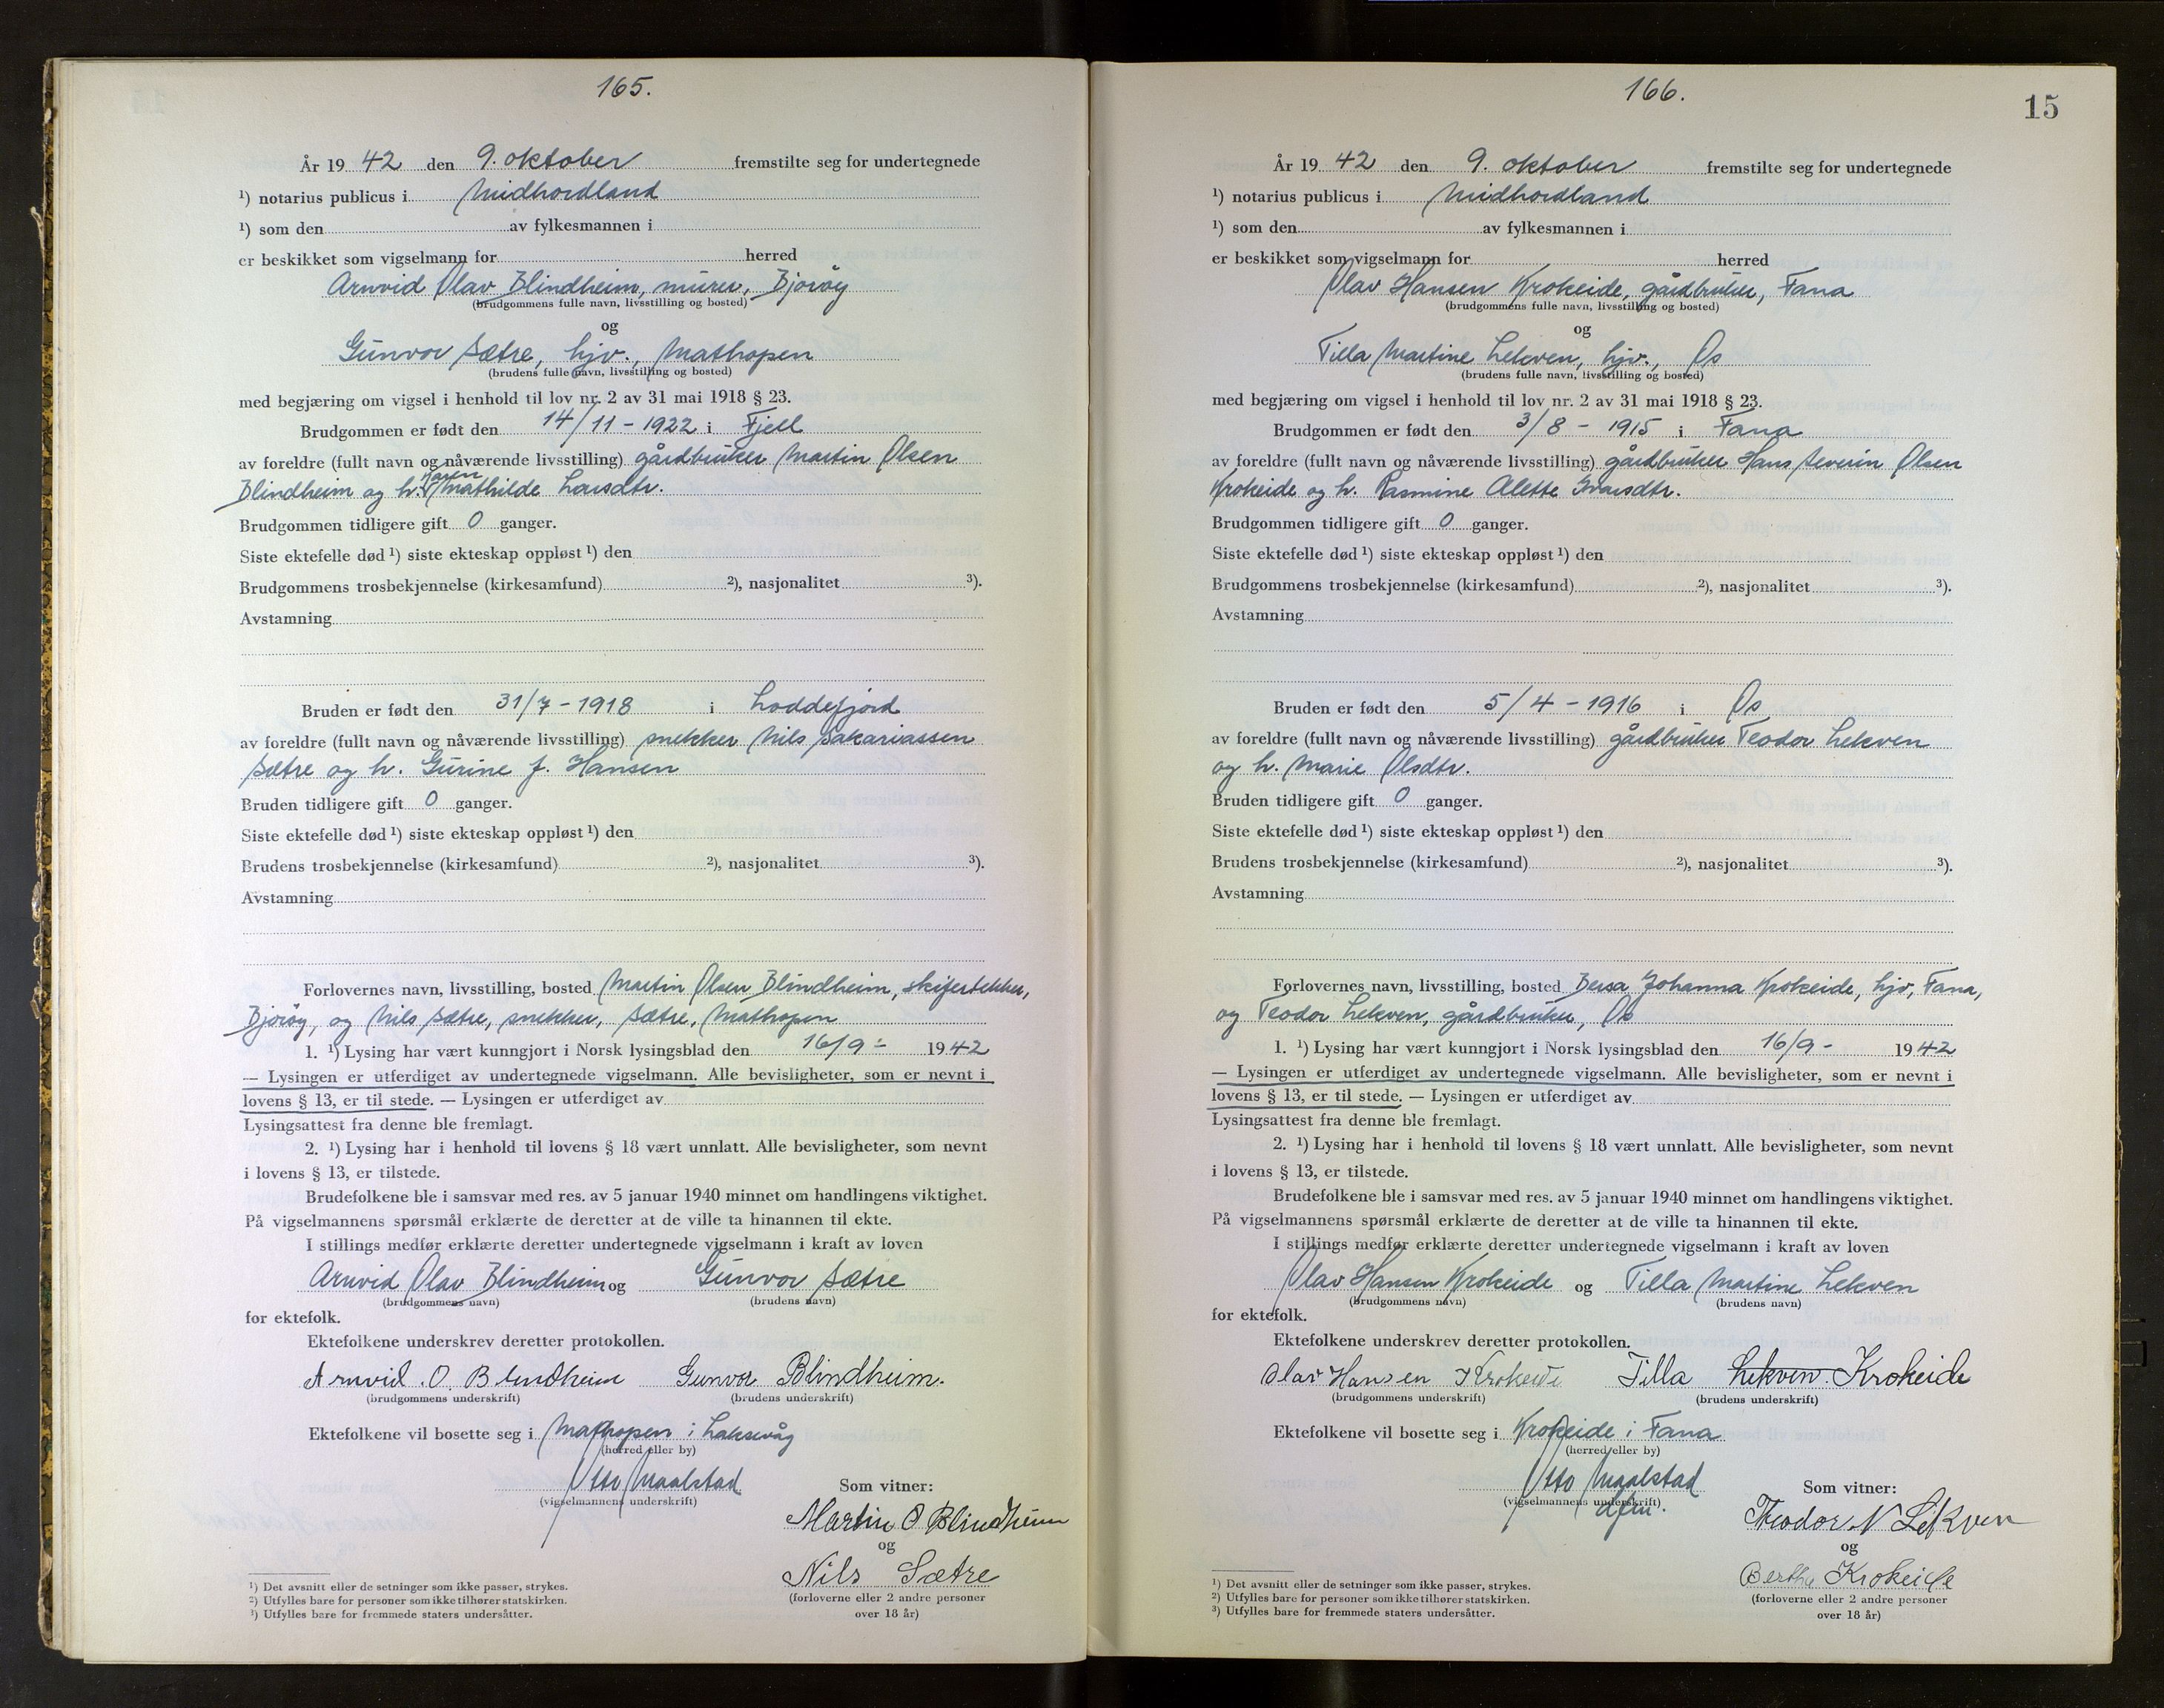 165.
År 1942 den 9. oktober fremstilte seg for undertegnede
¹) notarius publicus i Midhordland
¹) som den av fylkesmannen i
er beskikket som vigselmann for herred
Arnvid Olav Blindheim, murer, Bjorøy
(brudgommens fulle navn, livsstilling og bosted)
og
Gunvor Sætre, hjv., Mathopen
(brudens fulle navn, livsstilling og bosted)
med begjæring om vigsel i henhold til lov nr. 2 av 31 mai 1918 § 23.
Brudgommen er født den 14/11 - 1922 i Fjell
av foreldre (fullt navn og nåværende livsstilling) gårdbruker Martin Olsen
Blindheim og h. Karen Mathilde Larsdtr.
Brudgommen tidligere gift 0 ganger.
Siste ektefelle død ¹) siste ekteskap oppløst ¹) den
Brudgommens trosbekjennelse (kirkesamfund) ²), nasjonalitet ³).
Avstamning
Bruden er født den 31/7 - 1918 i Loddefjord
av foreldre (fullt navn og nåværende livsstilling) snekker Nils Sakariassen
Sætre og h. Gurine f. Hansen
Bruden tidligere gift 0 ganger.
Siste ektefelle død ¹) siste ekteskap oppløst ¹) den
Brudens trosbekjennelse (kirkesamfund) ²), nasjonalitet ³).
Avstamning
Forlovernes navn, livsstilling, bosted Martin Olsen Blindheim, skifertekker,
Bjorøy, og Nils Sætre, snekker, Sætre, Mathopen
1. ¹) Lysing har vært kunngjort i Norsk lysingsblad den 16/9 - 1942
— Lysingen er utferdiget av undertegnede vigselmann. Alle bevisligheter, som er nevnt i
lovens § 13, er til stede. — Lysingen er utferdiget av
Lysingsattest fra denne ble fremlagt.
2. ¹) Lysing har i henhold til lovens § 18 vært unnlatt. Alle bevisligheter, som nevnt
i lovens § 13, er tilstede.
Brudefolkene ble i samsvar med res. av 5 januar 1940 minnet om handlingens viktighet.
På vigselmannens spørsmål erklærte de deretter at de ville ta hinannen til ekte.
I stillings medfør erklærte deretter undertegnede vigselmann i kraft av loven
Arnvid Olav Blindheim og Gunvor Sætre
(brudgommens navn) (brudens navn)
for ektefolk.
Ektefolkene underskrev deretter protokollen.
Arnvid. O. Blindheim Gunvor Blindheim.
(brudgommens underskrift) (brudens underskrift)
Ektefolkene vil bosette seg i Mathopen i Laksevåg
(herred eller by)
Otto Maalstad
(vigselmannens underskrift)
Som vitner:
Martin O Blindheim
og
Nils Sætre
(forloverne eller 2 andre personer
over 18 år)
¹) Det avsnitt eller de setninger som ikke passer, strykes.
²) Utfylles bare for personer som ikke tilhører statskirken.
³) Utfylles bare for fremmede staters undersåtter.
166.
15
År 1942 den 9. oktober fremstilte seg for undertegnede
¹) notarius publicus i Midhordland
¹) som den av fylkesmannen i
er beskikket som vigselmann for herred
Olav Hansen Krokeide, gårdbruker, Fana
(brudgommens fulle navn, livsstilling og bosted)
og
Tilla Martine Lekven, hjv., Os
(brudens fulle navn, livsstilling og bosted)
med begjæring om vigsel i henhold til lov nr. 2 av 31 mai 1918 § 23.
Brudgommen er født den 3/8 - 1915 i Fana
av foreldre (fullt navn og nåværende livsstilling) gårdbruker Hans Severin Olsen
Krokeide og h. Rasmine Alette Ivarsdtr.
Brudgommen tidligere gift 0 ganger.
Siste ektefelle død ¹) siste ekteskap oppløst ¹) den
Brudgommens trosbekjennelse (kirkesamfund) ²), nasjonalitet ³).
Avstamning
Bruden er født den 5/4 - 1916 i Os
av foreldre (fullt navn og nåværende livsstilling) gårdbruker Teodor Lekven
og h. Marie Olsdtr.
Bruden tidligere gift 0 ganger.
Siste ektefelle død ¹) siste ekteskap oppløst ¹) den
Brudens trosbekjennelse (kirkesamfund) ²), nasjonalitet ³).
Avstamning
Forlovernes navn, livsstilling, bosted Johanna Krokeide, hjv, Fana,
og Teodor Lekven, gårdbruker, Os
1. ¹) Lysing har vært kunngjort i Norsk lysingsblad den 16/9 - 1942
— Lysingen er utferdiget av undertegnede vigselmann. Alle bevisligheter, som er nevnt i
lovens § 13, er til stede. — Lysingen er utferdiget av
Lysingsattest fra denne ble fremlagt.
2. ¹) Lysing har i henhold til lovens § 18 vært unnlatt. Alle bevisligheter, som nevnt
i lovens § 13, er tilstede.
Brudefolkene ble i samsvar med res. av 5 januar 1940 minnet om handlingens viktighet.
På vigselmannens spørsmål erklærte de deretter at de ville ta hinannen til ekte.
I stillings medfør erklærte deretter undertegnede vigselmann i kraft av loven
Olav Hansen Krokeide og Tilla Martine Lekven
(brudgommens navn) (brudens navn)
for ektefolk.
Ektefolkene underskrev deretter protokollen.
Olav Hansen Krokeide Tilla Lekven. Krokeide
(brudgommens underskrift) (brudens underskrift)
Ektefolkene vil bosette seg i Krokeide i Fana
(herred eller by)
Otto Maalstad
(vigselmannens underskrift)
dfm.
Som vitner:
Theodor N Lekven
og
Bertha Krokeide
(forloverne eller 2 andre personer
over 18 år)
¹) Det avsnitt eller de setninger som ikke passer, strykes.
²) Utfylles bare for personer som ikke tilhører statskirken.
³) Utfylles bare for fremmede staters undersåtter.